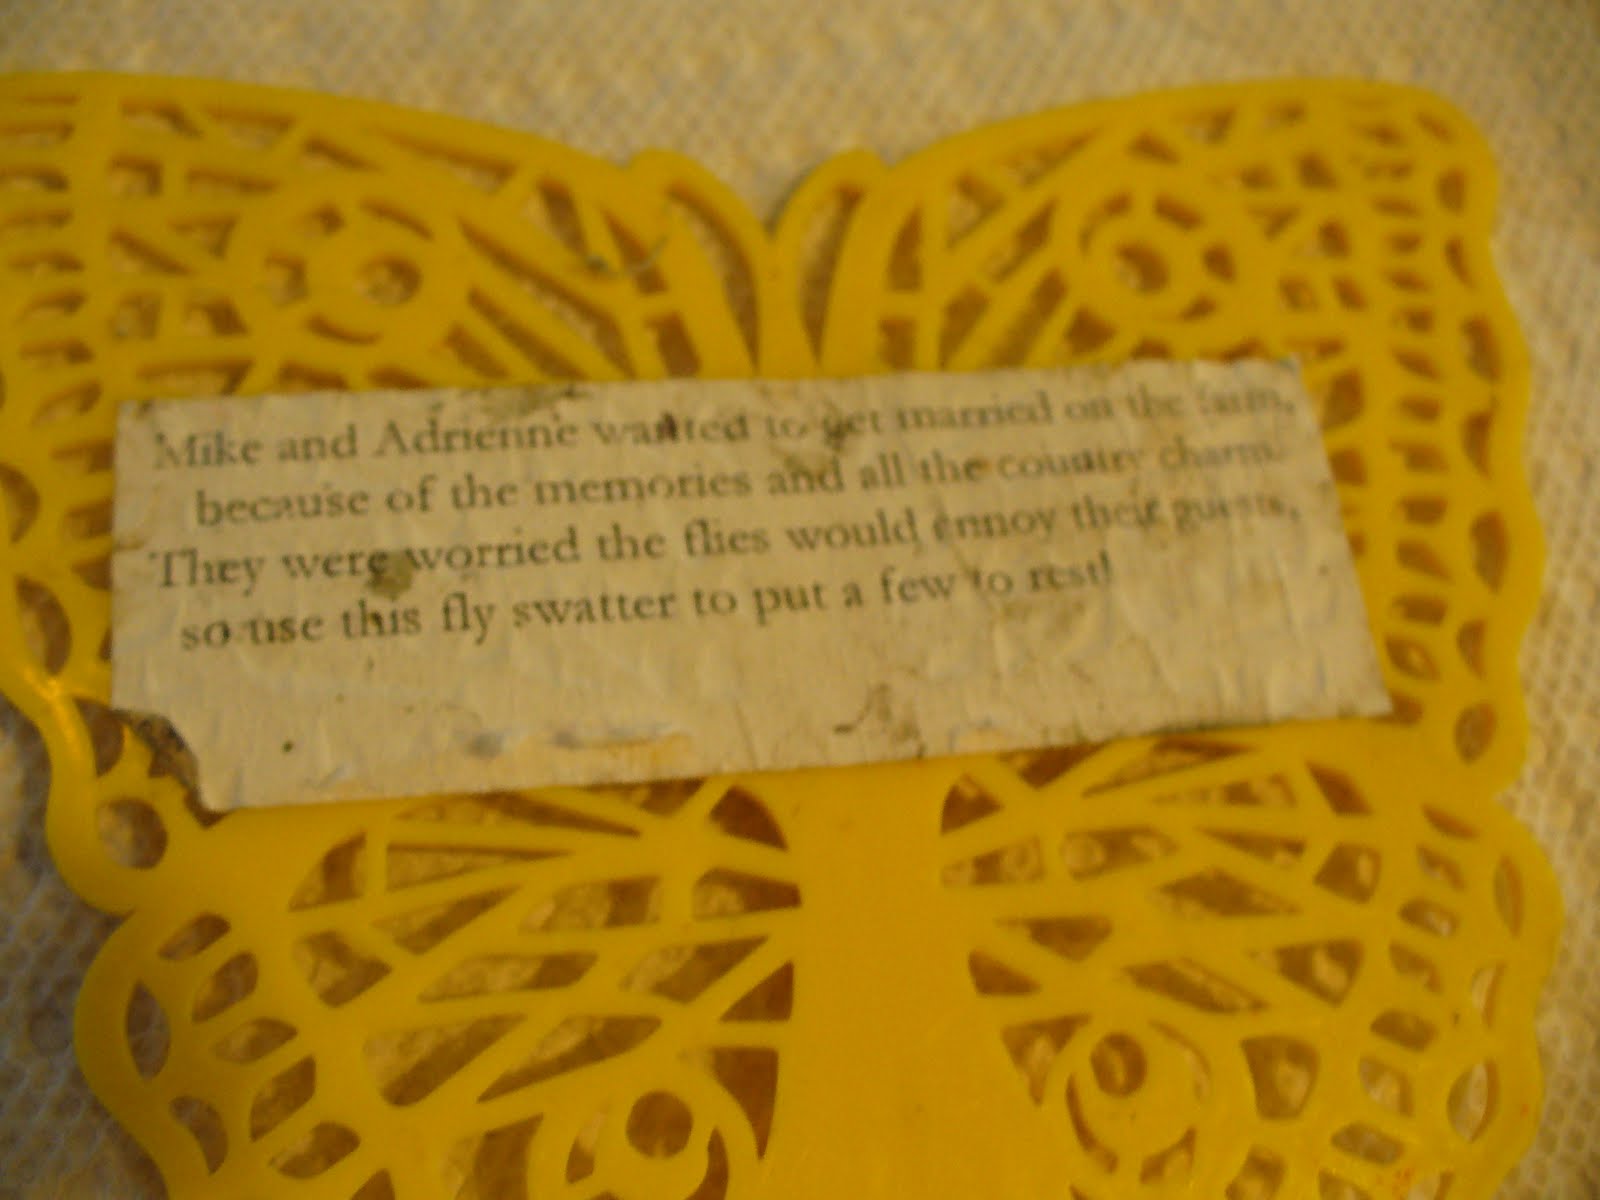 Mike and Adrienne wanted to get married on the farm,
because of the memories and all the country charm.
They were worried the flies would ennoy their guests,
so use this fly swatter to put a few to rest!